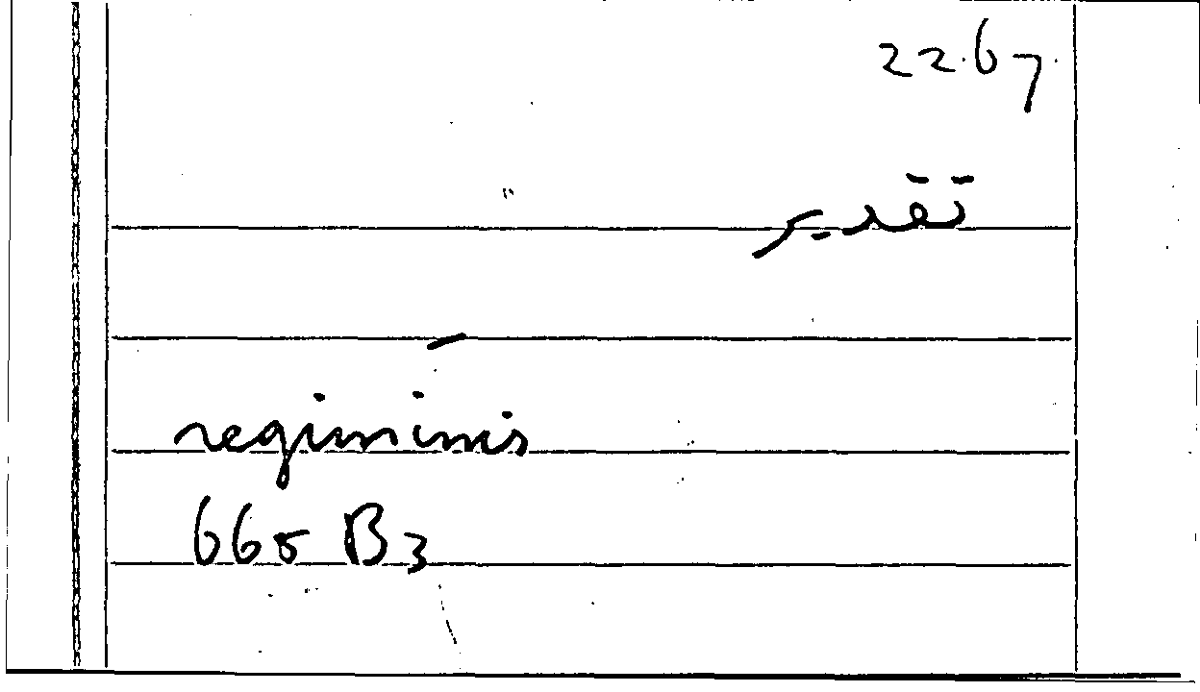 22.67
تقدير
regiminis
665 B3